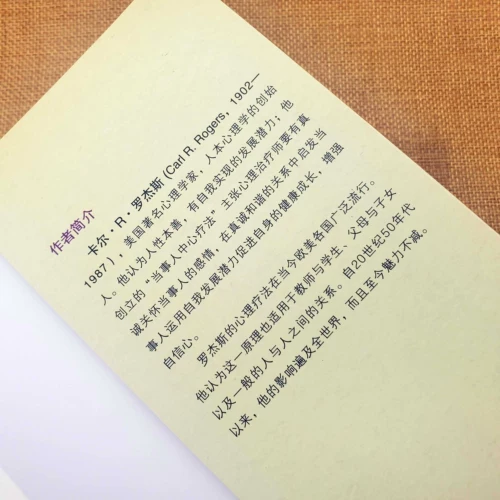 作者简介
卡尔·R·罗杰斯 (Carl R. Rogers, 1902—
1987)，美国著名心理学家，人本心理学的创始
人。他认为人性本善，有自我实现的发展潜力；他
创立的“当事人中心疗法”主张心理治疗师要有真
诚关怀当事人的感情，在真诚和谐的关系中启发当
事人运用自我发展潜力促进自身的健康成长，增强
自信心。
罗杰斯的心理疗法在当今欧美各国广泛流行。
他认为这一原理也适用于教师与学生、父母与子女
以及一般的人与人之间的关系。自20世纪50年代
以来，他的影响遍及全世界，而且至今魅力不减。